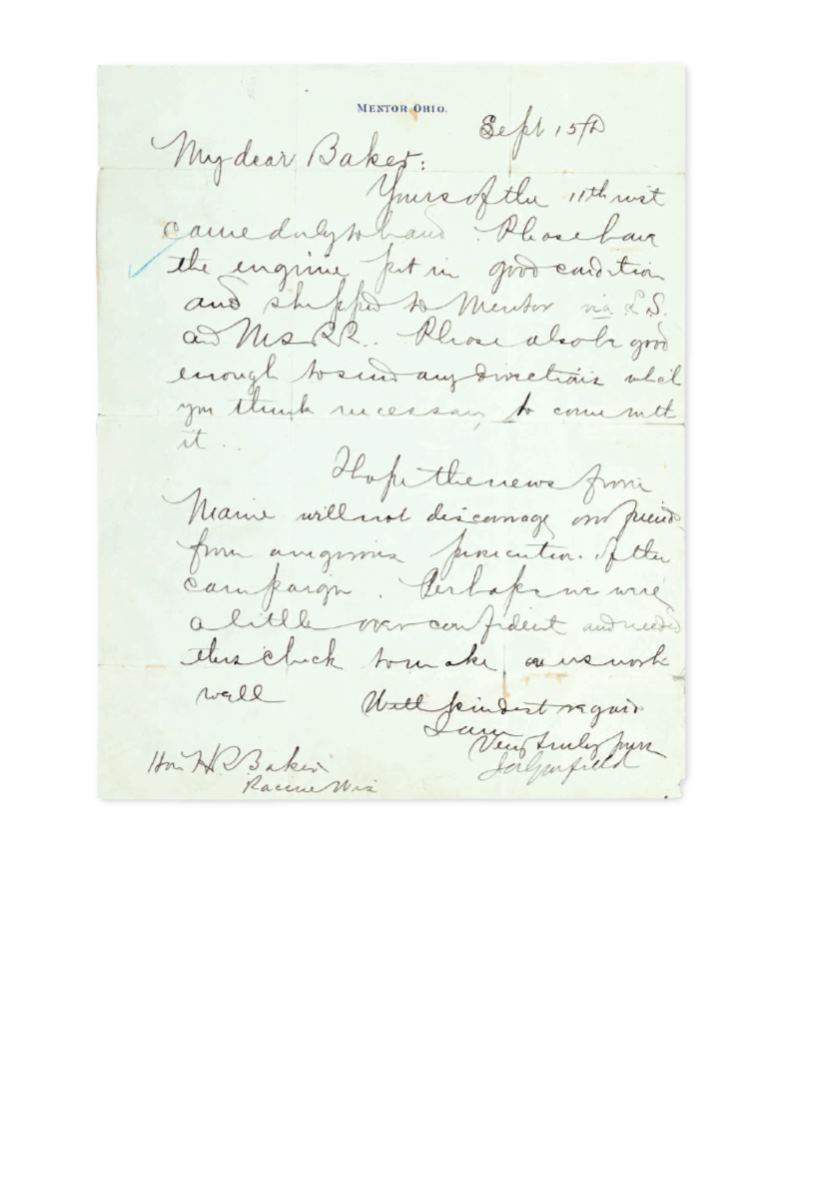 MENTOR OHIO.
Sept 15th
My dear Baker:
Yours of the 11th inst
came duly to hand. Please have
the engine put in good condition
and shipped to Mentor via L.S.
and M S R R.. Please also be good
enough to send any directions which
you think necessary, to come with
it..
I hope the news from
Maine will not discourage our friends
from a vigorous prosecution of the
campaign. Perhaps we were
a little over confident and needed
this check to make us work
well
With kindest regards
I am
Very truly yours
J A Garfield
Hon H R Baker
Racine Wis